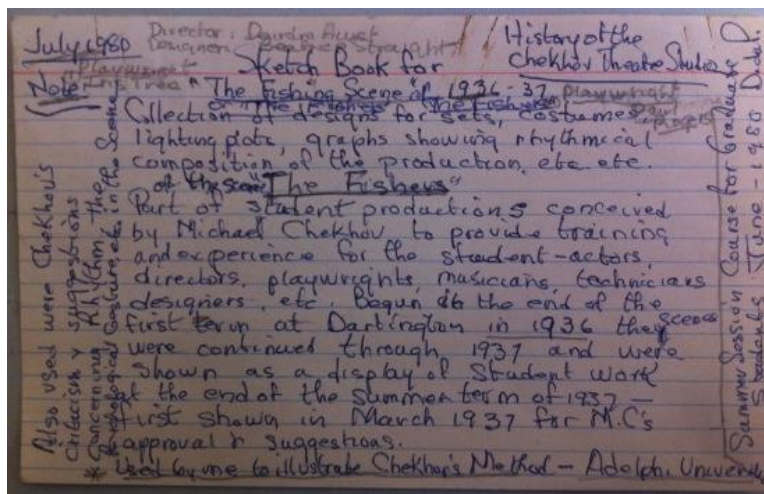 July 1980
Director: Deirdre Hurst
Designer: Beatrice Straight
History of the
Chekhov Theatre Studio
playwright
Iris Tree
Sketch Book for
(Note:
"The Fishing Scene of 1936-37
or "The Fishers"
playwright
Paul
Rogers
Collection of designs for sets, costumes
lighting plots, graphs showing rhythmical
composition of the production, etc. etc.
of the scene "The Fishers"
Part of student productions conceived
by Michael Chekhov to provide training
and experience for the student-actors,
directors, playwrights, musicians, technicians
designers, etc. Begun at the end of the
first term at Dartington in 1936 they scenes
were continued through 1937 and were
shown as a display of Student work
at the end of the summer term of 1937 —
first shown in March 1937 for M.C's
approval & suggestions.
* Used by me to illustrate Chekhov's Method - Adelphi University
Also used were Chekhov's
Criticism & suggestions
Concerning Rhythm, the
Psychological Gesture, etc. in the Scene
Summer Session Course for Graduate
Students June - 1980